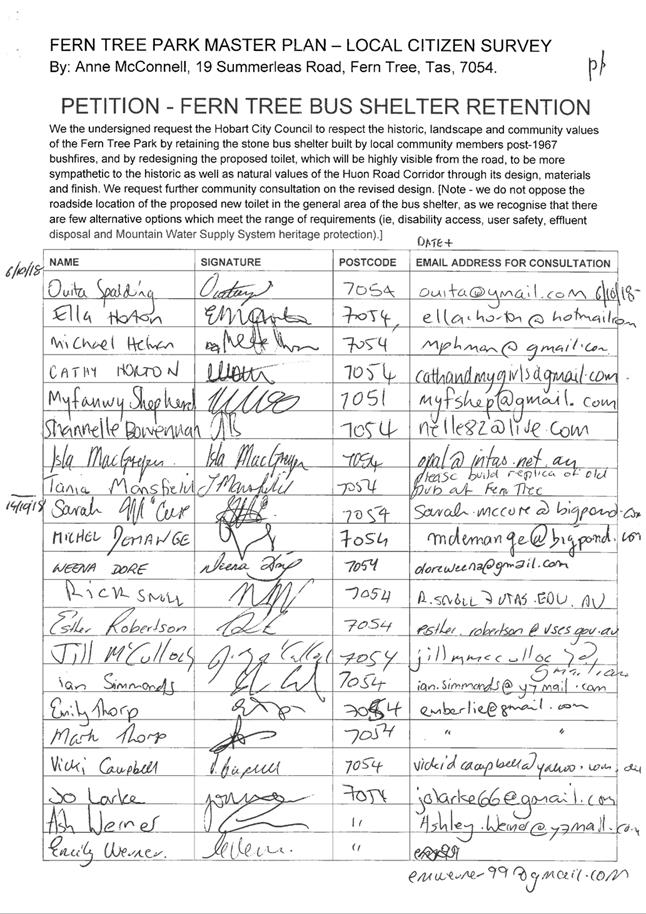 FERN TREE PARK MASTER PLAN – LOCAL CITIZEN SURVEY
By: Anne McConnell, 19 Summerleas Road, Fern Tree, Tas, 7054.
PETITION - FERN TREE BUS SHELTER RETENTION
We the undersigned request the Hobart City Council to respect the historic, landscape and community values
of the Fern Tree Park by retaining the stone bus shelter built by local community members post-1967
bushfires, and by redesigning the proposed toilet, which will be highly visible from the road, to be more
sympathetic to the historic as well as natural values of the Huon Road Corridor through its design, materials
and finish. We request further community consultation on the revised design. [Note - we do not oppose the
roadside location of the proposed new toilet in the general area of the bus shelter, as we recognise that there
are few alternative options which meet the range of requirements (ie, disability access, user safety, effluent
disposal and Mountain Water Supply System heritage protection).]
DATE +
NAME SIGNATURE POSTCODE EMAIL ADDRESS FOR CONSULTATION
6/10/18 Ouita Spalding 7054 ouita@ymail.com 6/10/18-
Ella Horton 7054, ella.horton@hotmail.com
Michael 7054 mphman@gmail.com
CATHY HORTON 7054 cathandmygirls@gmail.com
Myfanwy Shepherd 7051 myfshep@gmail.com
Shannelle 7054 nelle82@live.com
Isla MacGregor Isla MacGregor 7054 opal@intas.net.au
Tania Mansfield T Mansfield 7054 please build replica of old
pub at Fern Tree
14/10/18 Sarah McCure 7054 Sarah.mccure@bigpond.com
MICHEL DEMANGE 7054 mdemange@bigpond.com
WEENA DORE 7054 doreweena@gmail.com
RICK SNELL 7054 R.SNELL@UTAS.EDU.AU
Esther Robertson 7054 esther.robertson@
Jill McCulloch 7054
Ian Simmonds 7054 ian.simmonds@y7mail.com
Emily Thorp 7054 emberlie@gmail.com
Mark Thorp 7054 " "
Vicki Campbell 7054 vickidcampbell@yahoo.com.au
Jo Larke 7054 jolarke66@gmail.com
Ash Werner " @y7mail.com
Emily Werner. "
emwerner99@gmail.com